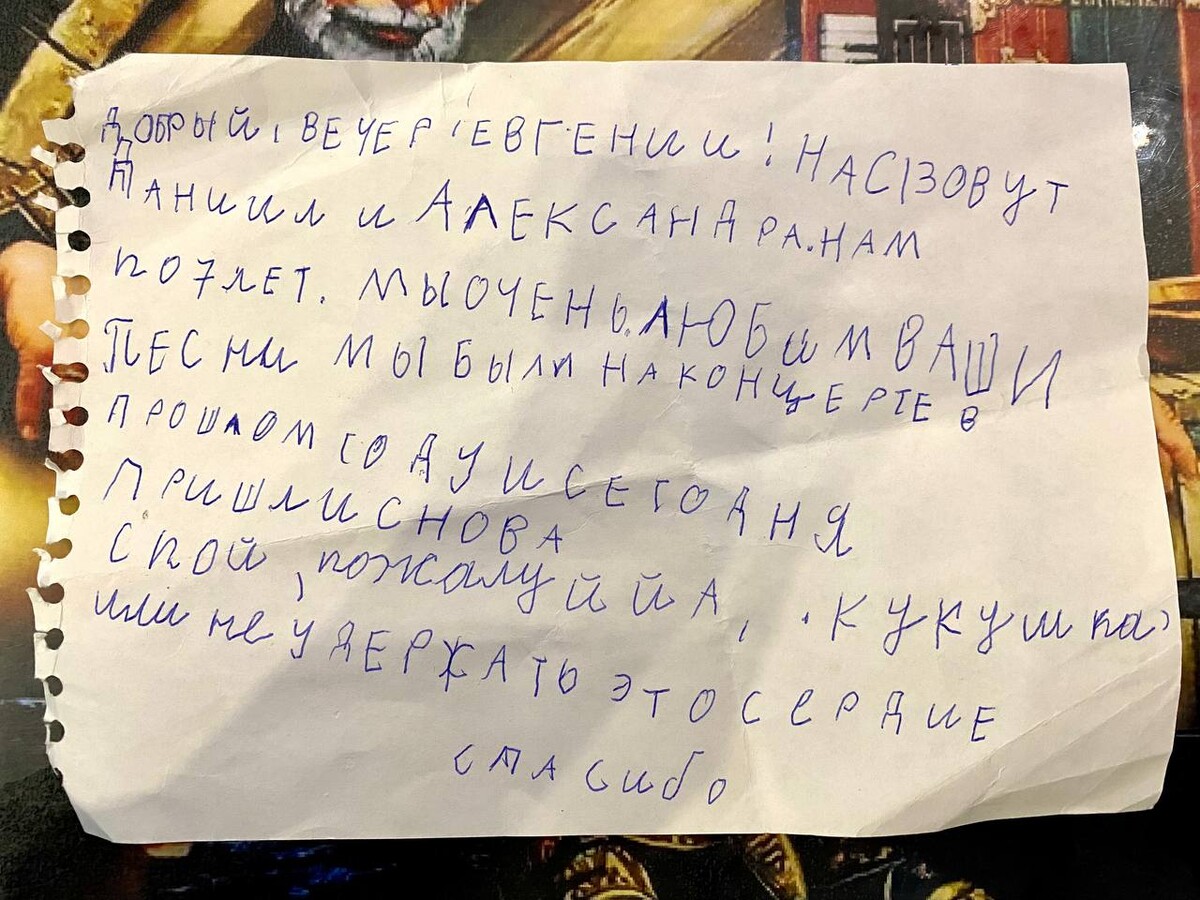 ДОБРЫЙ, ВЕЧЕР, ЕВГЕНИИ! НАС ЗОВУТ
ДАНИИЛ И АЛЕКСАНДРА. НАМ
ПО 7 ЛЕТ. МЫ ОЧЕНЬ ЛЮБИМ ВАШИ
ПЕСНИ МЫ БЫЛИ НА КОНЦЕРТЕ В
ПРОШЛОМ ГОДУ И СЕГОДНЯ
ПРИШЛИ СНОВА
СПОЙ, пожалуЙЙА, "КУКУШка"
или не УДЕРЖАТЬ ЭТО СЕРДЦЕ
СПАСибо